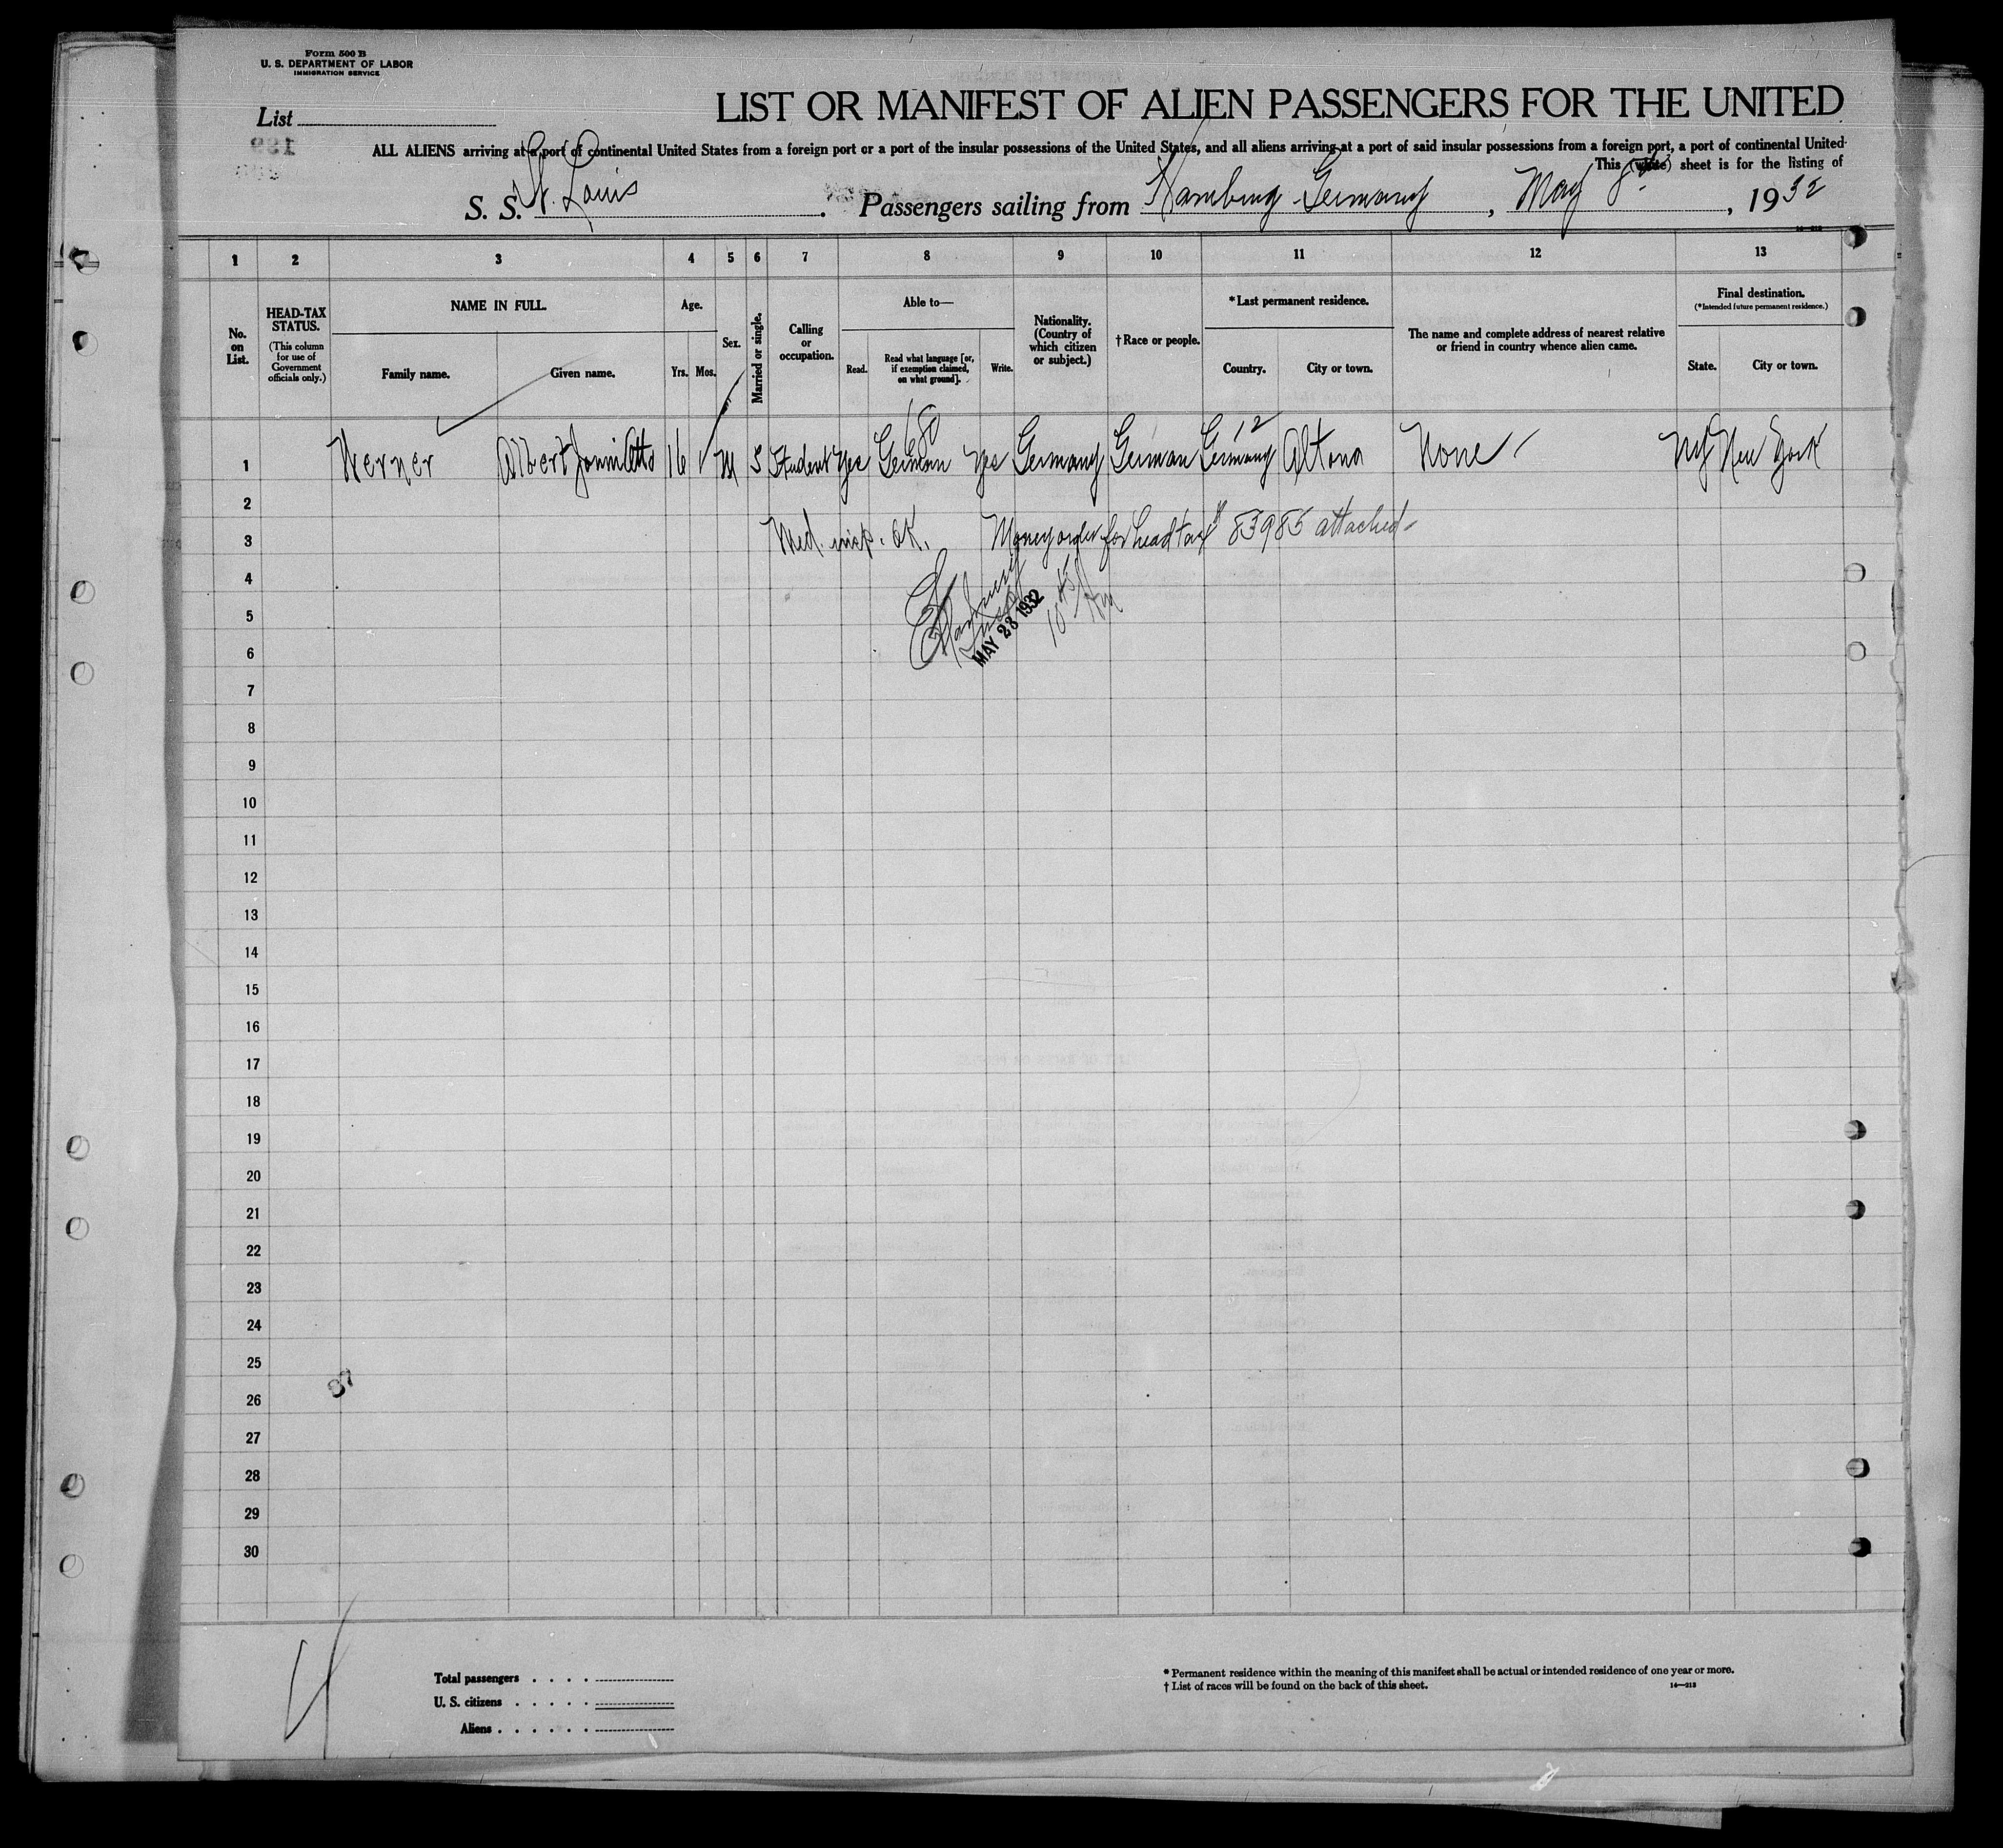 Form 500 B
U. S. DEPARTMENT OF LABOR
IMMIGRATION SERVICE
LIST OR MANIFEST OF ALIEN PASSENGERS FOR THE UNITED
List
ALL ALIENS arriving at a port of continental United States from a foreign port or a port of the insular possessions of the United States, and all aliens arriving at a port of said insular possessions from a foreign port, a port of continental United
This (white) sheet is for the listing of
S. S. St. Louis. Passengers sailing from Hamburg Germany, May 8, 1932
1 2 3 4 5 6 7 8 9 10 11 12 13
No. on List.
HEAD-TAX STATUS.
(This column for use of Government officials only.)
NAME IN FULL.
Family name. Given name.
Age.
Yrs. Mos.
Sex.
Married or single.
Calling or occupation.
Able to—
Read. Read what language [or, if exemption claimed, on what ground]. Write.
Nationality. (Country of which citizen or subject.)
†Race or people.
*Last permanent residence.
Country. City or town.
The name and complete address of nearest relative or friend in country whence alien came.
Final destination.
(*Intended future permanent residence.)
State. City or town.
680 12
1 Werner Albert Otto 16 M S Student Yes German Yes Germany German Germany Altona None NY New York
2
3 Med. insp. OK. Money order for head tax # 83985 attached
4
5 MAY 28 1932
6
7
8
9
10
11
12
13
14
15
16
17
18
19
20
21
22
23
24
25
26
27
28
29
30
Total passengers . . . .
U. S. citizens . . . . .
Aliens . . . . . .
* Permanent residence within the meaning of this manifest shall be actual or intended residence of one year or more.
† List of races will be found on the back of this sheet.
14—213